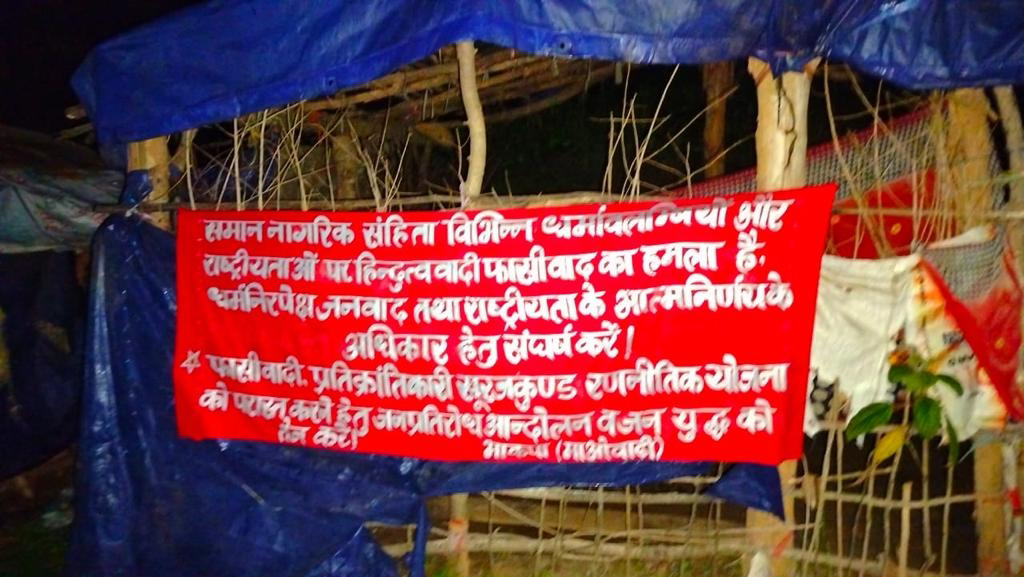 समान नागरिक संहिता विभिन्न धर्मावलम्बियों और
राष्ट्रीयताओं पर हिन्दुत्ववादी फासीवाद का हमला है.
धर्मनिरपेक्ष जनवाद तथा राष्ट्रीयता के आत्मनिर्णय के
अधिकार हेतु संघर्ष करें!
☆ फासीवादी, प्रतिक्रांतिकारी सूरजकुण्ड रणनीतिक योजना
को परास्त करने हेतु जनप्रतिरोध आन्दोलन व जन युद्ध को
तेज करें। भाकपा (माओवादी)